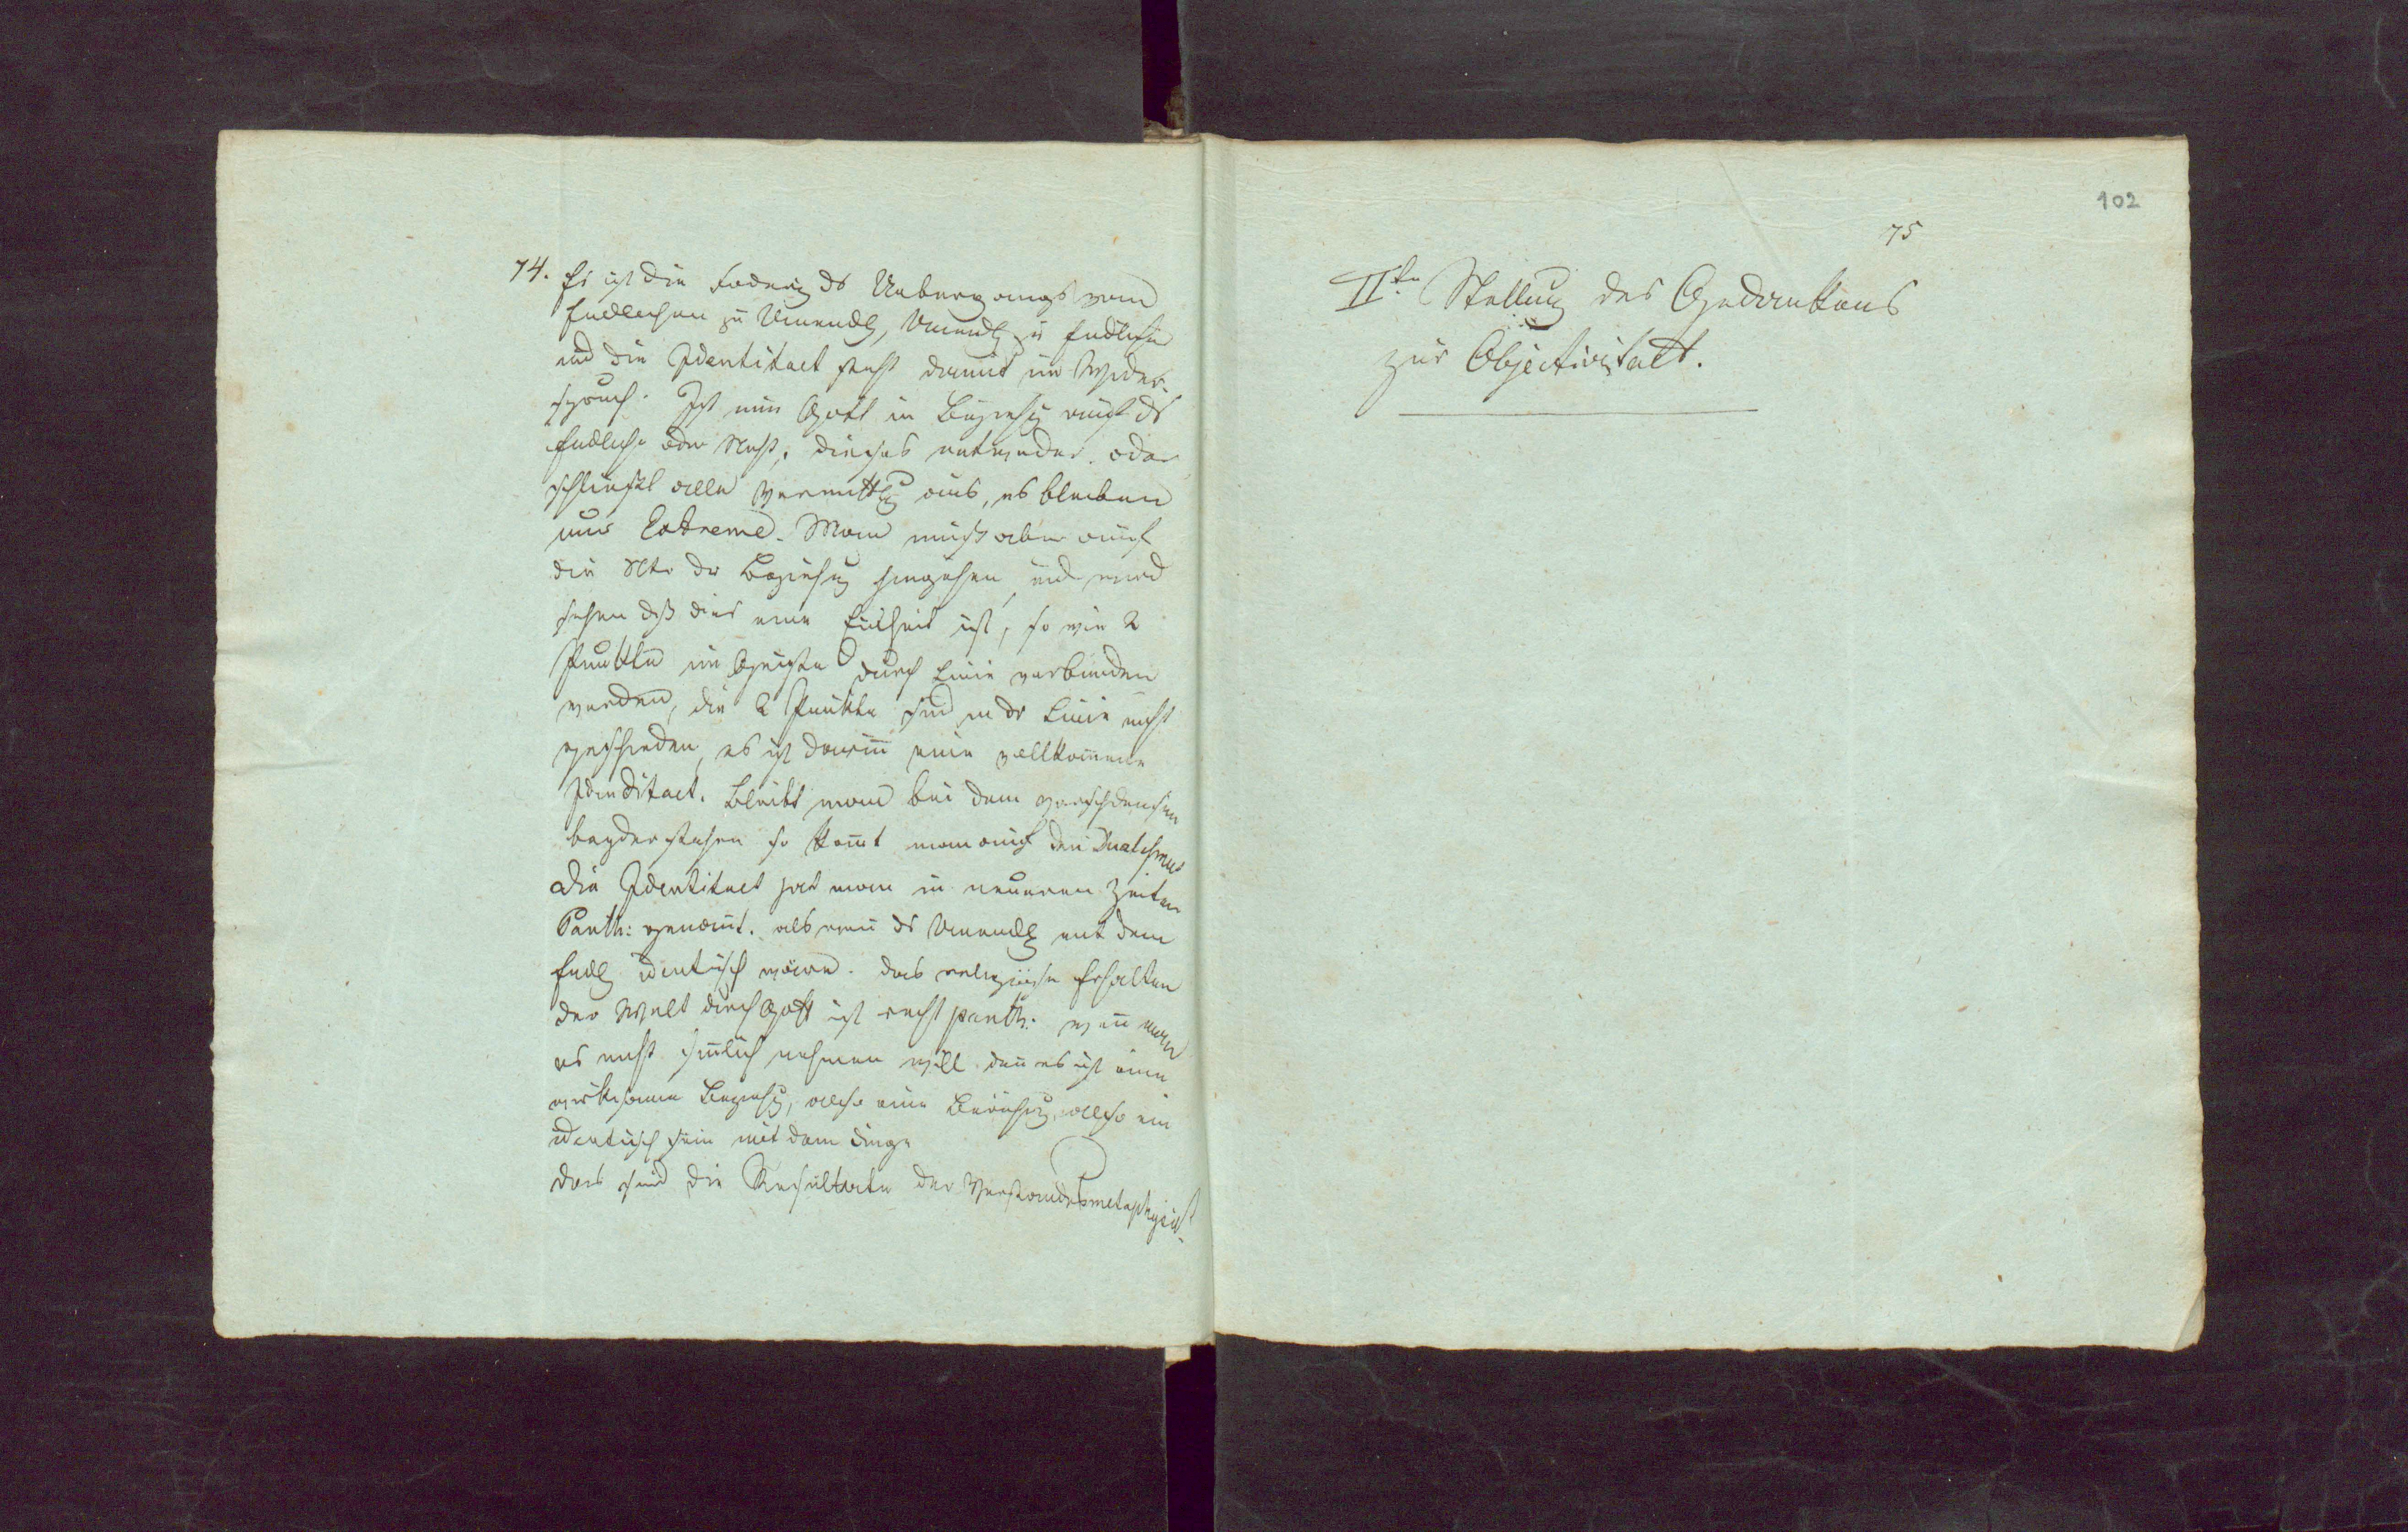 74. Es ist die Foderung ds Uebergangs vom
Endlichen zu Unendl, Unendl zu Endlichen
und die Identitaet steht damit im Wider-
spruch. Ist nun Gott in Beziehung auf ds
Endliche oder Nicht, dieses entweder oder
schliesst alle Vermittlg aus, es bleiben
nur Extreme. Man muß aber auf
die Ntr der Beziehung hingehen, und wird
sehen dß dies eine Einheit ist, so wie 2
Punkte im Geiste durch Linie verbunden
werden, die 2 Punkte sind in dr Linie nicht
geschieden, es ist darin eine vollkomene
Idenditaet. Bleibt man bei dem verschiedensein
beyder stehen so komt man auf den Dualismus
Die Identitaet hat man in neueren Zeiten
Panth: genant. als wen ds Unendl mit dem
Endl identisch wäre. das religiöse Erhalten
der Welt durch Gott ist recht panth. wen man
es nicht sinlich nehmen will. den es ist eine
wirksame Beziehg, also eine Berührung, also ein
identisch sein mit dem Dinge
das sind die Resultate der Verstandesmetaphysik.
102
75
IIte Stellung des Gedankens
zur Objectivitaet.